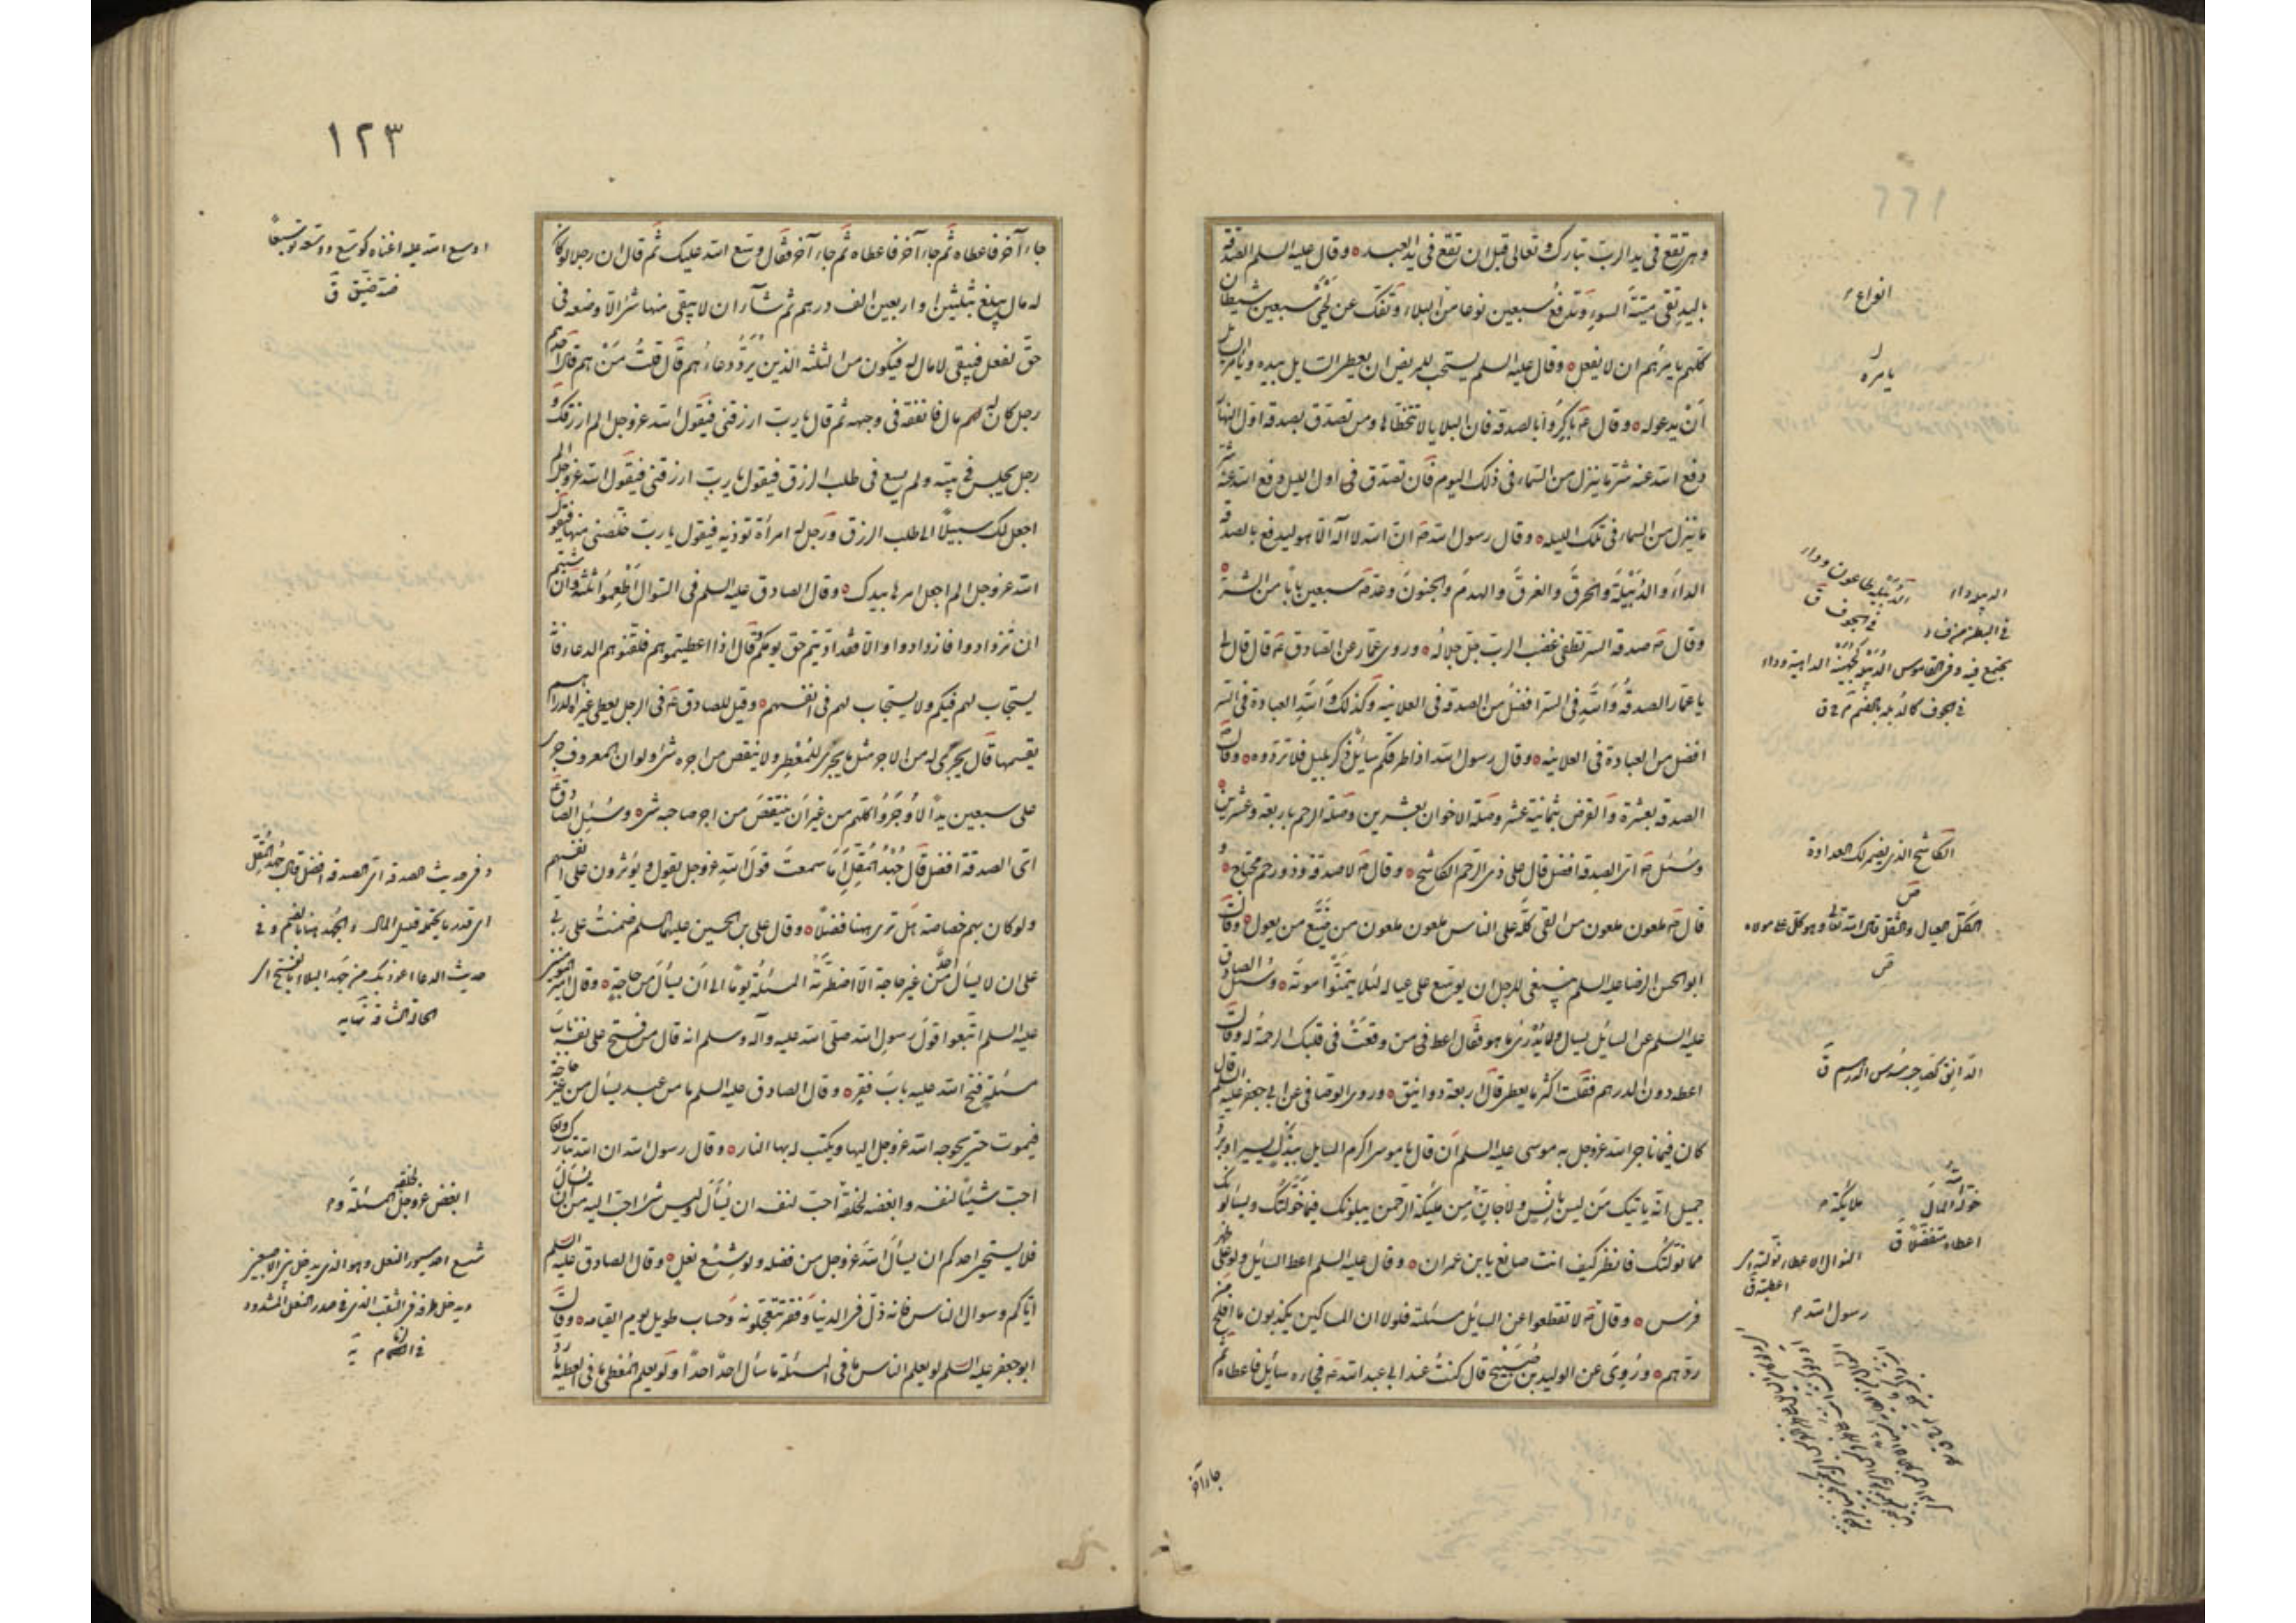 وهى تقع فى يد الرب تبارك وتعالى قبل ان تقع فى يد العبد وقال عليه السلم الصدقة
باليد تقى ميتة السوء وتدفع سبعين نوعا من البلاء وتفك عن لحى سبعين شيطان
كلهم يامرهم ان لا يفعل وقال عليه السلم يستحب للمريض ان يعطى السايل بيده ويامر السايل
ان يدعو له وقال ع باكروا بالصدقه فان البلايا لا تتخطاها ومن تصدق بصدقه اول النهار
دفع الله عنه شر ما ينزل من السماء فى ذلك اليوم فان تصدق فى اول الليل دفع الله عنه شر
ما ينزل من السماء فى تلك الليله وقال رسول الله ص ان الله لا اله الا هو ليدفع بالصدقه
الداء والدبيلة والحرق والغرق والهدم والجنون وعد ص سبعين بابا من الشر
وقال ص صدقة السر تطفئ غضب الرب جل جلاله وروى عمار عن الصادق ع قال قال لى
يا عمار الصدقة والله فى السر افضل من الصدقه فى العلانيه وكذلك والله العبادة فى السر
افضل من العبادة فى العلانيه وقال رسول الله اذا طرقكم سائل ذكر بليل فلا تردوه وقال
الصدقه بعشرة والقرض بثمانية عشر وصلة الاخوان بعشرين وصلة الرحم باربعة وعشرين
وسئل ص اى الصدقه افضل قال على ذى الرحم الكاشح وقال ص لا صدقة وذو رحم محتاج
قال ص ملعون ملعون من القى كله على الناس ملعون ملعون من ضيع من يعول وقال
ابو الحسن الرضا عليه السلم ينبغى للرجل ان يوسع على عياله لئلا يتمنوا موته وسئل الصادق
عليه السلم عن السائل يسال ولا يدرى ما هو فقال اعط من وقعت فى قلبك الرحمة له وقال
اعطه دون الدرهم فقلت اكثر ما يعطى قال اربعة دوانيق وروى الوصافى عن ابى جعفر عليه السلم قال
كان فيما ناجى الله عز وجل به موسى عليه السلم ان قال يا موسى اكرم السايل ببذل يسير او برد
جميل انه ياتيك من ليس بانس ولا جان من مليكة الرحمن يبلونك فيما خولتك ويسالونك
مما نولتك فانظر كيف انت صانع يا بن عمران وقال عليه السلم اعط السائل ولو على ظهر
فرس وقال ص لا تقطعوا على السايل مسئلته فلولا ان المساكين يكذبون ما افلح من
ردهم وروى عن الوليد بن صبيح قال كنت عند ابى عبد الله ع فجاءه سائل فاعطاه ثم
جاء آخر
انواع
يامره
الكاشح الذى يضمر لك العداوة
الكل العيال والثقل قال الله تعالى وهو كل على مولاه
ص
الدانق كصاحب سدس الدرهم ق
ملائكة
خوله الله المال
اعطاه متفضلا ق
رسول الله
١٢٣
جاء آخر فاعطاه ثم جاء آخر فاعطاه ثم جاء آخر فقال وسع الله عليك ثم قال ان رجلا لو كان
له مال يبلغ ثلثين او اربعين الف درهم ثم شاء ان لا يبقى منها شئ الا وضعه فى
حق لفعل فيبقى لا مال له فيكون من الثلثه الذين يرد دعاؤهم قال قلت من هم قال احدهم
رجل كان له مال فانفقه فى وجهه ثم قال يا رب ارزقنى فيقول الله عز وجل الم ارزقك و
رجل يجلس فى بيته ولم يسع فى طلب الرزق فيقول يا رب ارزقنى فيقول الله عز وجل الم
اجعل لك سبيلا الى طلب الرزق ورجل له امرأة تؤذيه فيقول يا رب خلصنى منها فيقول
الله عز وجل الم اجعل امرها بيدك وقال الصادق عليه السلم فى السوال اطعموا ثلثة وان شئتم
ان تزدادوا فازدادوا والا فقد اديتم حق يومكم وقال اذا اعطيتموهم فلقنوهم الدعاء فانه
يستجاب لهم فيكم ولا يستجاب لهم فى انفسهم وقيل للصادق ع فى الرجل يعطى غيره الدراهم
يقسمها قال يجرى له من الاجر مثل ما يجرى للمعطى ولا ينقص من اجره شئ ولو ان المعروف جرى
على سبعين يدا لاوجروا كلهم من غير ان ينتقص من اجر صاحبه شئ وسئل الصادق ع
اى الصدقة افضل قال جهد المقل اما سمعت قول الله عز وجل يقول ويؤثرون على انفسهم
ولو كان بهم خصاصة هل ترى ههنا فضلا وقال على بن الحسين عليهما السلم ضمنت على ربى
على ان لا يسأل احد من غير حاجة الا اضطرته المسئلة يوما الى ان يسأل من حاجة وقال امير المؤمنين
عليه السلم اتبعوا قول رسول الله صلى الله عليه وآله وسلم انه قال من فتح على نفسه باب
مسئلة فتح الله عليه باب فقر وقال الصادق عليه السلم ما من عبد يسأل من غير حاجة
فيموت حتى يحوجه الله عز وجل اليها ويكتب له بها النار وقال رسول الله ان الله تبارك وتعالى
احب شيئا لنفسه وابغضه لخلقه احب لنفسه ان يسأل وليس شئ احب اليه من ان يسأل
فلا يستحيى احدكم ان يسأل الله عز وجل من فضله ولو شسع نعل وقال الصادق عليه السلم
اياكم وسوال الناس فانه ذل فى الدنيا وفقر تتعجلونه وحساب طويل يوم القيامه وقال
ابو جعفر عليه السلم لو يعلم الناس ما فى المسئلة ما سأل احد احدا ولو يعلم المعطى ما فى العطية ما رد
اوسع الله عليه اغناه كوسع ووسعه توسيعا
ضد ضيق ق
وفى حديث الصدقه اى الصدقه افضل قال جهد المقل
اى قدر ما يحتمله قليل المال والجهد هنا بالضم وفى
حديث الدعا اعوذ بك من جهد البلاء بالفتح اى
الحالة الشاقة نهايه
ابغض عز وجل لخلقه المسئلة
شسع احد سيور النعل وهو الذى يدخل بين الاصبعين
ويدخل طرفه فى الثقب الذى فى صدر النعل المشدود
فى الزمام يه